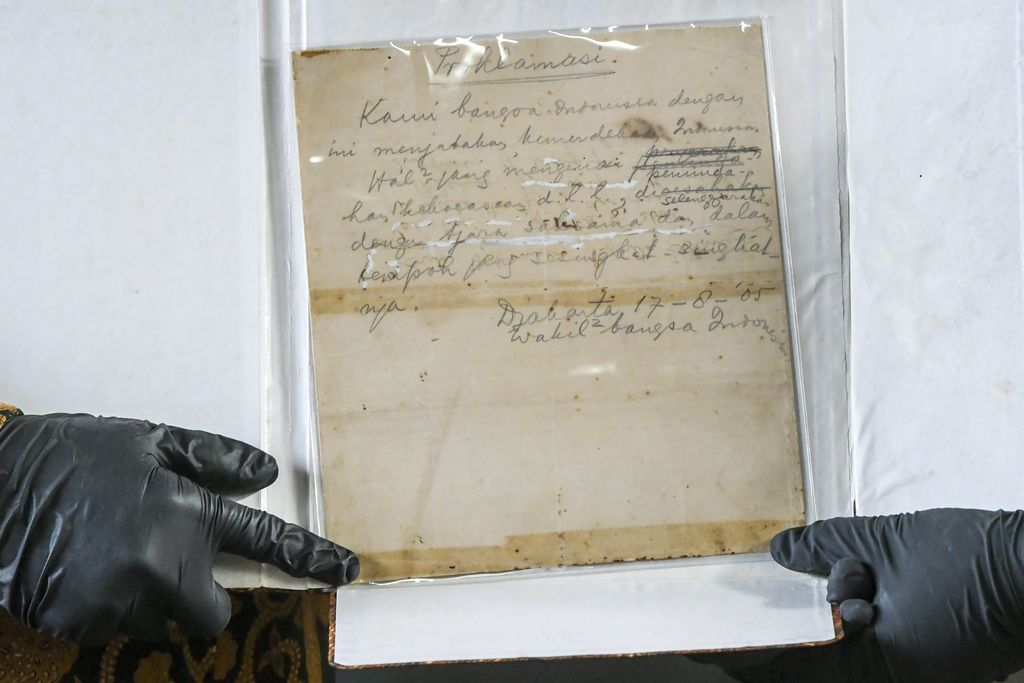 Proklamasi.
Kami bangsa Indonesia dengan
ini menjatakan kemerdekaan Indonesia.
Hal² jang mengenai
peminda-
han kekoeasaan d.l.l., dioesahakan
selenggarakan
dengan tjara saksama dan dalam
tempoh jang sesingkat-singkat-
nja.
Djakarta 17-8-'05
Wakil² bangsa Indonesia